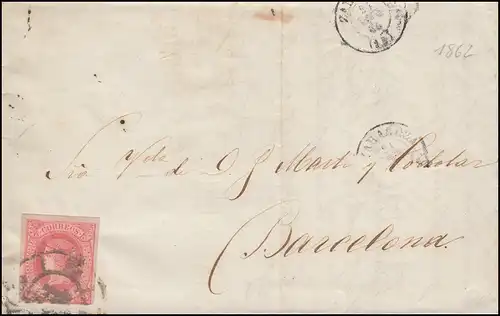 1862
Sra Vda de D. J. Martí y Codolar
Barcelona
CORREOS